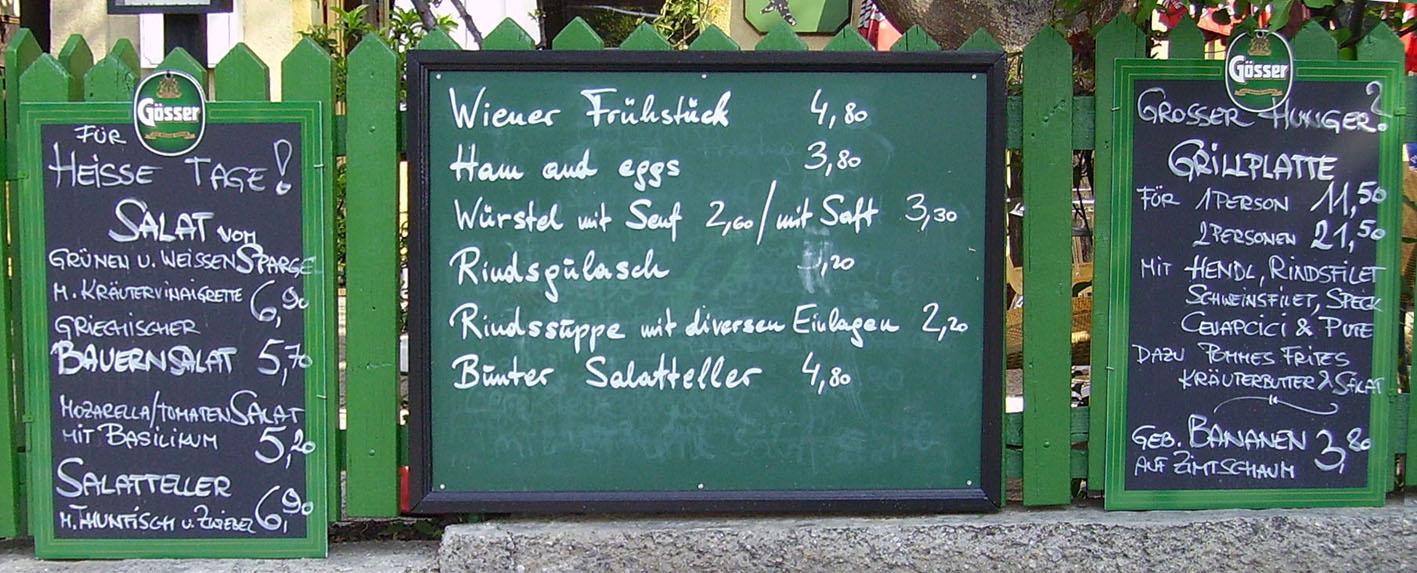 Gösser
FÜR
HEISSE TAGE!
SALAT VOM
GRÜNEN U. WEISSEN SPARGEL
M. KRÄUTERVINAIGRETTE 6,90
GRIECHISCHER
BAUERNSALAT 5,70
MOZARELLA/TOMATEN SALAT
MIT BASILIKUM 5,20
SALATTELLER
M. THUNFISCH U. ZWIEBEL 6,90
Wiener Frühstück 4,80
Ham and eggs 3,80
Würstel mit Senf 2,60 / mit Saft 3,30
Rindsgulasch
Rindssuppe mit diversen Einlagen 2,20
Bunter Salatteller 4,80
Gösser
GROSSER HUNGER?
GRILLPLATTE
FÜR 1 PERSON 11,50
2 PERSONEN 21,50
MIT HENDL, RINDSFILET
SCHWEINSFILET, SPECK
CEVAPCICI & PUTE
DAZU POMMES FRITES
KRÄUTERBUTTER & SALAT
GEB. BANANEN 3,80
AUF ZIMTSCHAUM